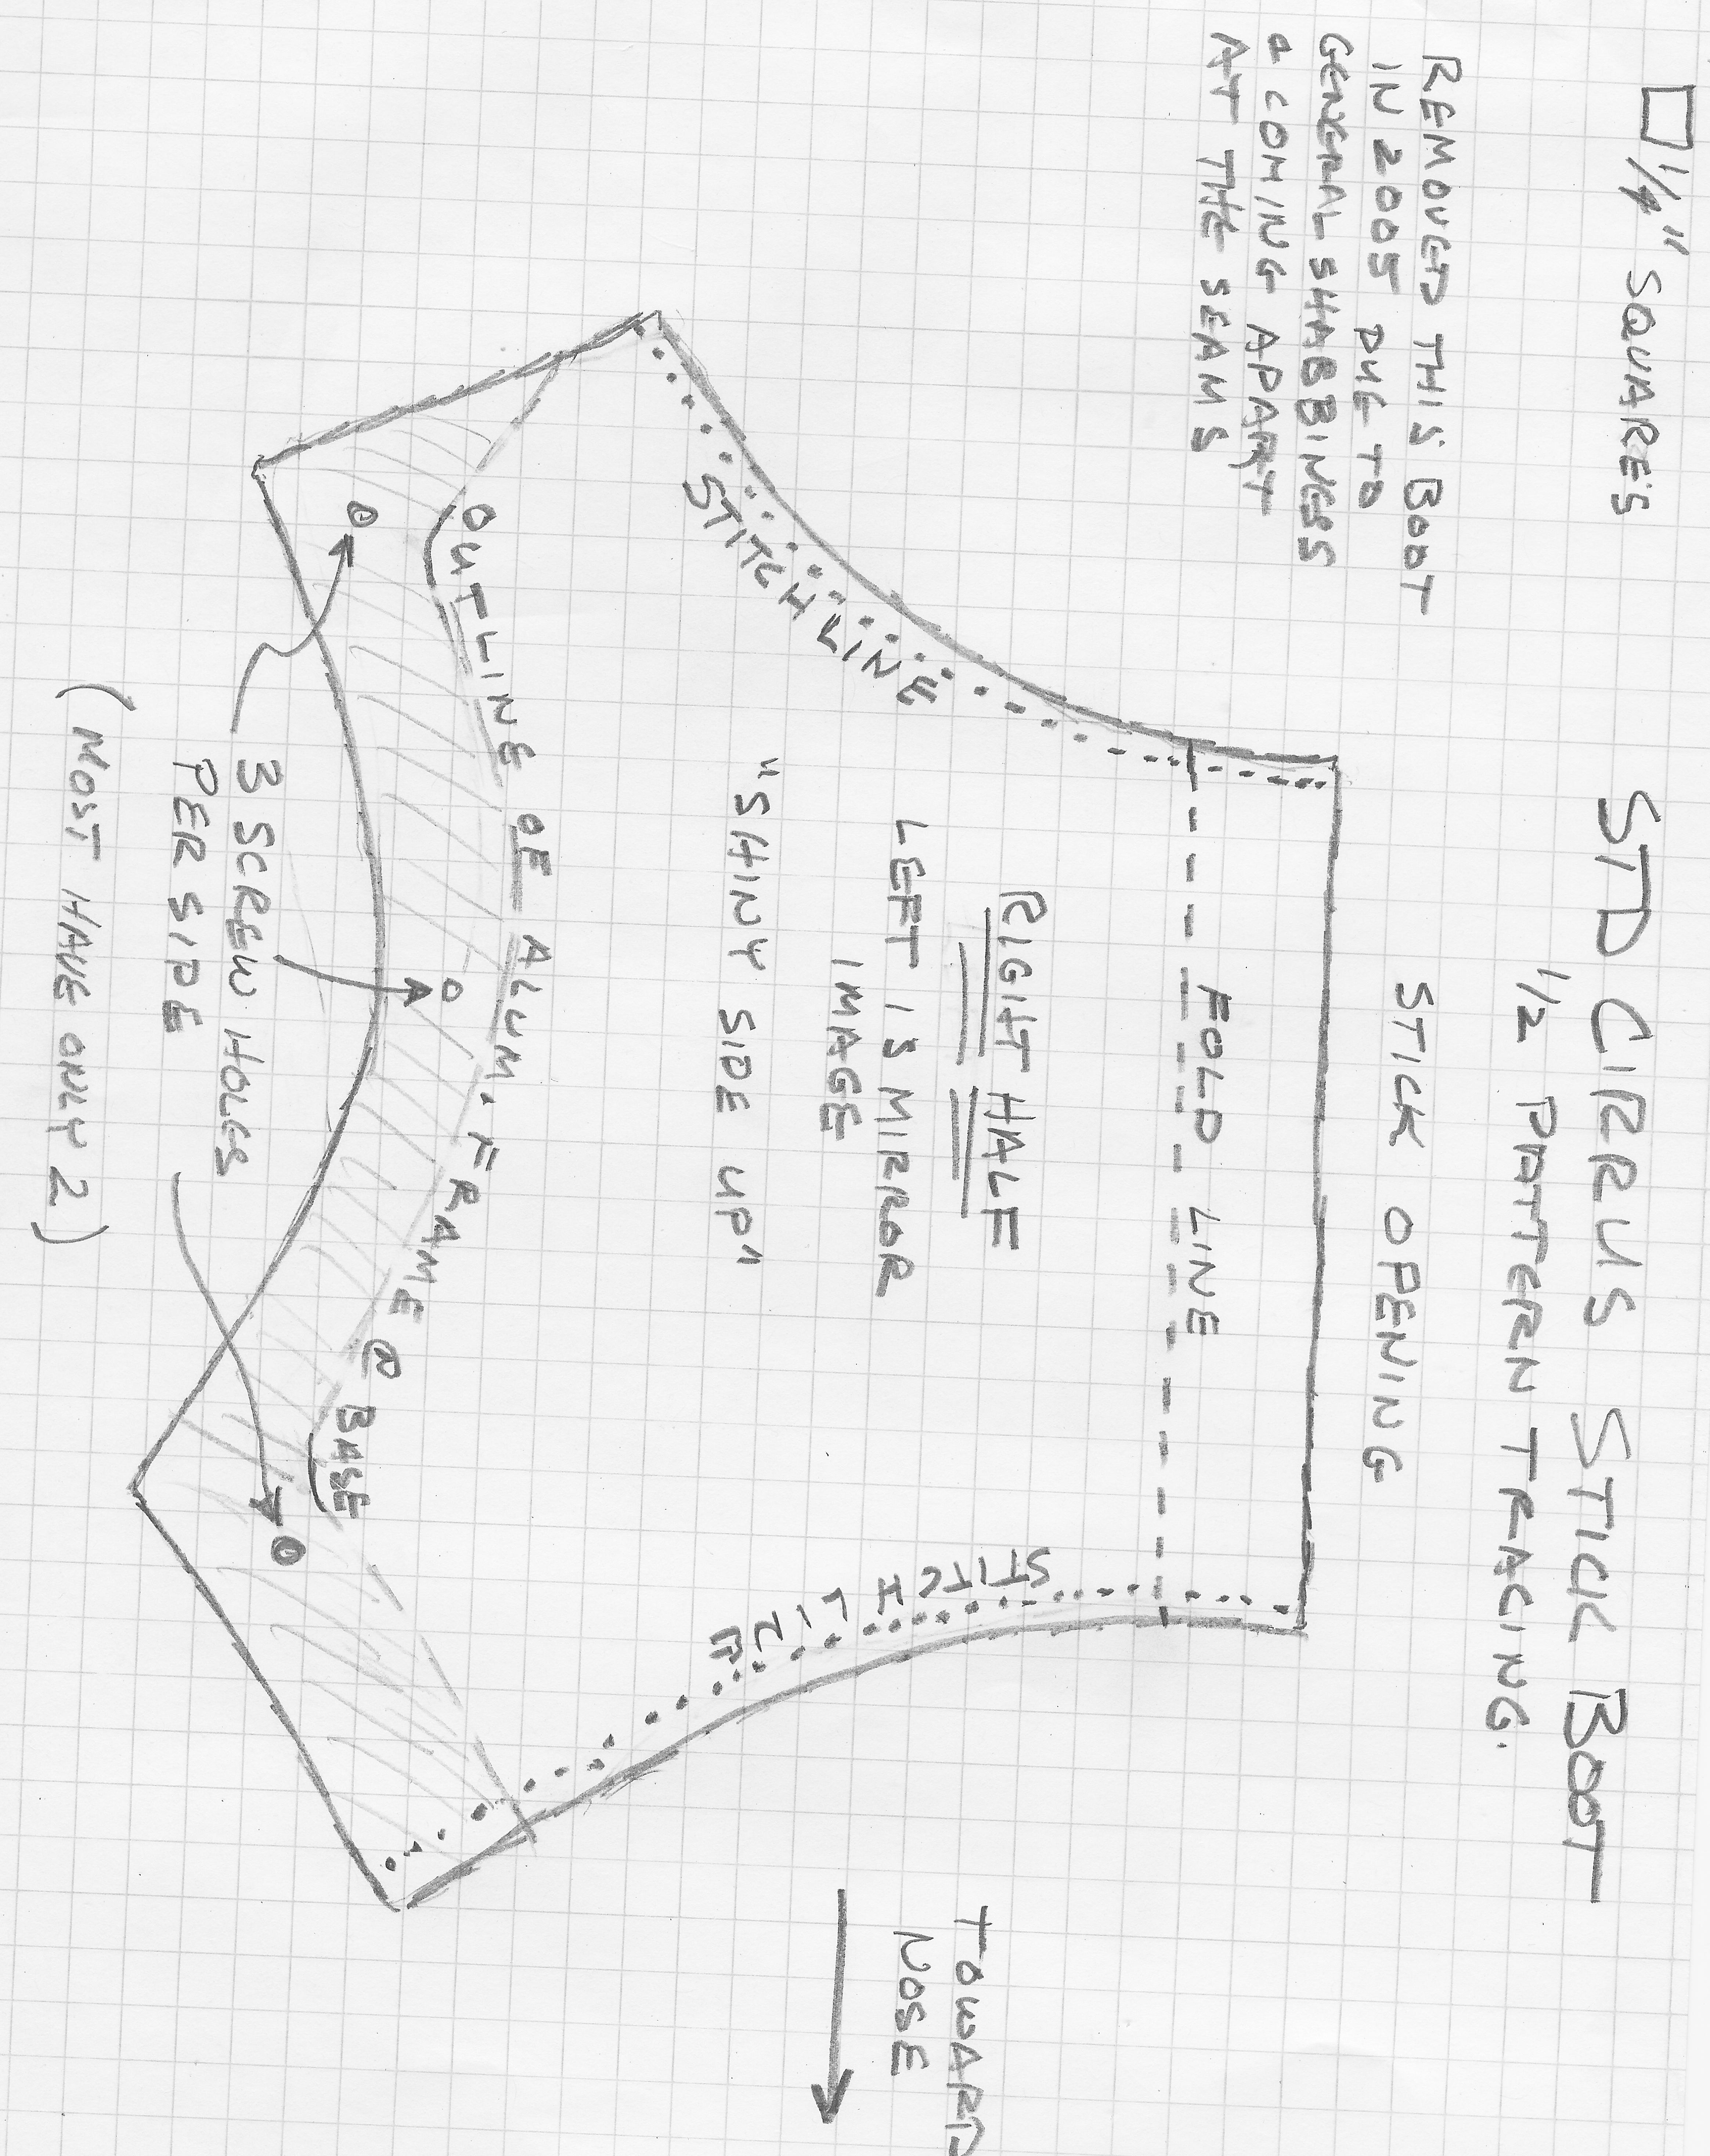 □ 1/4" SQUARES
STD CIRRUS STICK BOOT
1/2 PATTERN TRACING.
REMOVED THIS BOOT
IN 2005 DUE TO
GENERAL SHABBINESS
& COMING APART
AT THE SEAMS
STICK OPENING
FOLD LINE
RIGHT HALF
LEFT IS MIRROR
IMAGE
"SHINY SIDE UP"
STITCH LINE
STITCH LINE
TOWARD
NOSE
OUTLINE OF ALUM. FRAME @ BASE
3 SCREW HOLES
PER SIDE
(MOST HAVE ONLY 2)